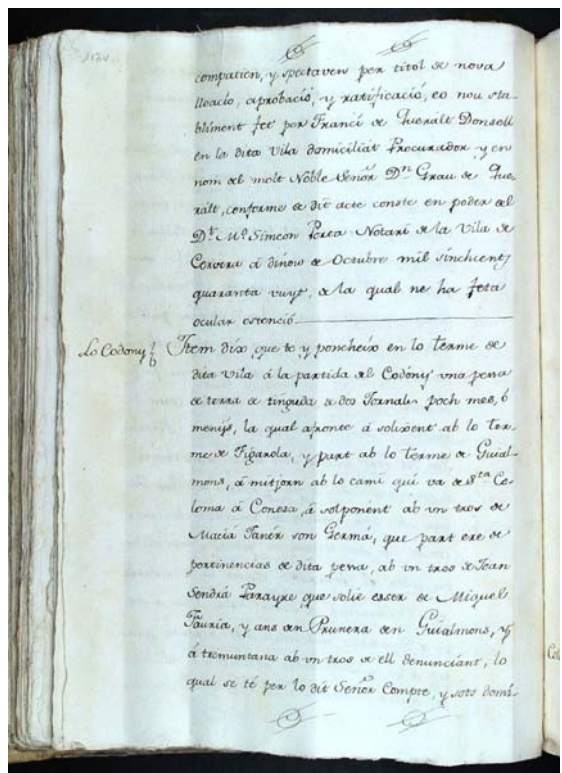 113v.
competien, y spectaven per titol de nova
lloació, aprobació, y ratificació, eo nou sta-
bliment fet per Franci de Queralt Donsell
en la dita Vila domiciliat Procurador y en
nom del molt Noble Señor Dn. Grau de Que-
ralt, conforme de dit acte conste en poder del
Dt. Mº Simeon Porta Notari de la Vila de
Cervera á dinou de Octubre mil sinchcents
quaranta vuyt, de la qual ne ha feta
ocular ostenció.
Lo Codony
Item dix que te y poncheix en lo terme de
dita Vila á la partida del Codóny una pessa
de terra de tinguda de dos Jornals poch mes, ó
menys, la qual afronte á solixent ab lo Ter-
me de Figarola, y part ab lo terme de Guial-
mons, á mitjorn ab lo camí qui va de Sta Co-
loma á Conesa, á solponent ab un tros de
Maciá Janér son Germá, que part ere de
pertinencias de dita pessa, ab un tros de Joan
Sendrá Parayre que solie esser de Miquel
Tauria, y ans den Prunera den Guialmons, y
á tremuntana ab un tros de ell denunciant, lo
qual se té per lo dit Señor Compte, y sots domi-